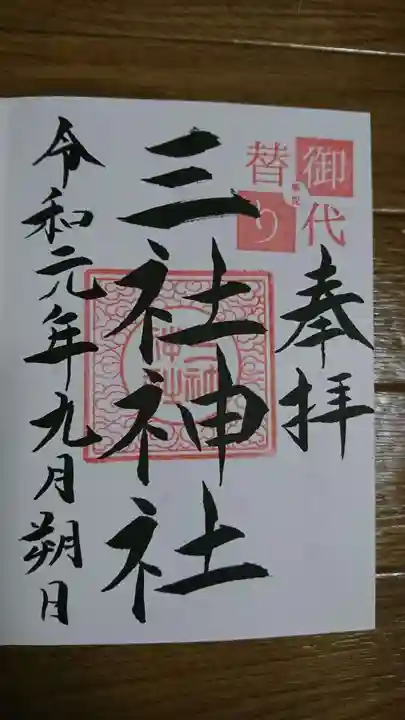 御代替り
奉祝
奉拝
三社神社
令和元年九月朔日